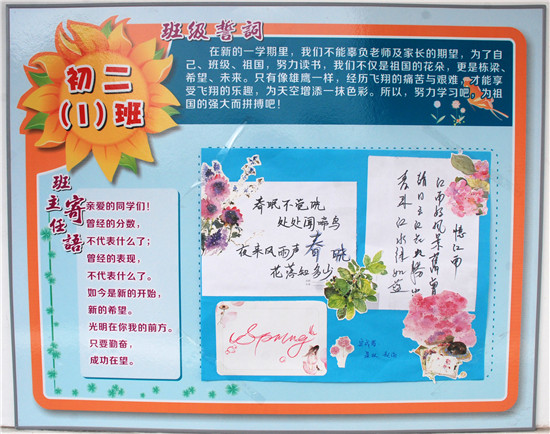 班级誓詞
初二
(1)班
在新的一学期里,我们不能辜负老师及家长的期望,为了自
己、班级、祖国,努力读书,我们不仅是祖国的花朵,更是栋梁、
希望、未来。只有像雄鹰一样,经历飞翔的痛苦与艰难,才能享
受飞翔的乐趣,为天空增添一抹色彩。所以,努力学习吧,为祖
国的强大而拼搏吧!
班主任寄語
亲爱的同学们!
曾经的分数,
不代表什么了;
曾经的表现,
不代表什么了。
如今是新的开始,
新的希望。
光明在你我的前方。
只要勤奋,
成功在望。
春眠不觉晓
处处闻啼鸟
夜来风雨声
花落知多少
春晓
忆江南
江南好风景舊曾
谙日出江花红勝火
春来江水绿如蓝
Spring